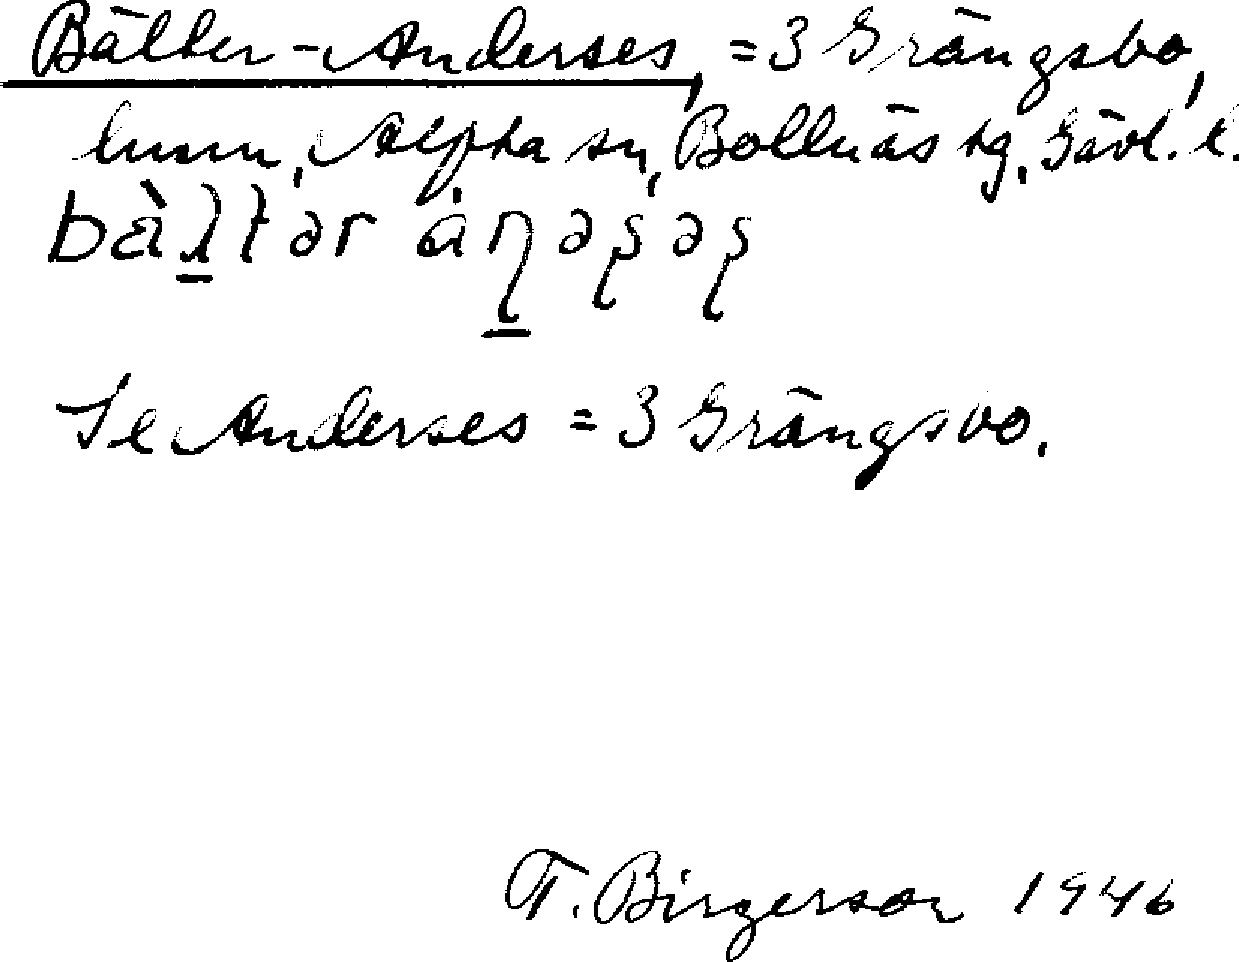 Bälter-Anderses, = 3 Grängsbo,
hmn, Alfta sn, Bollnäs tg, Gävl. l.
Se Anderses = 3 Grängsbo.
T. Birgerson 1946